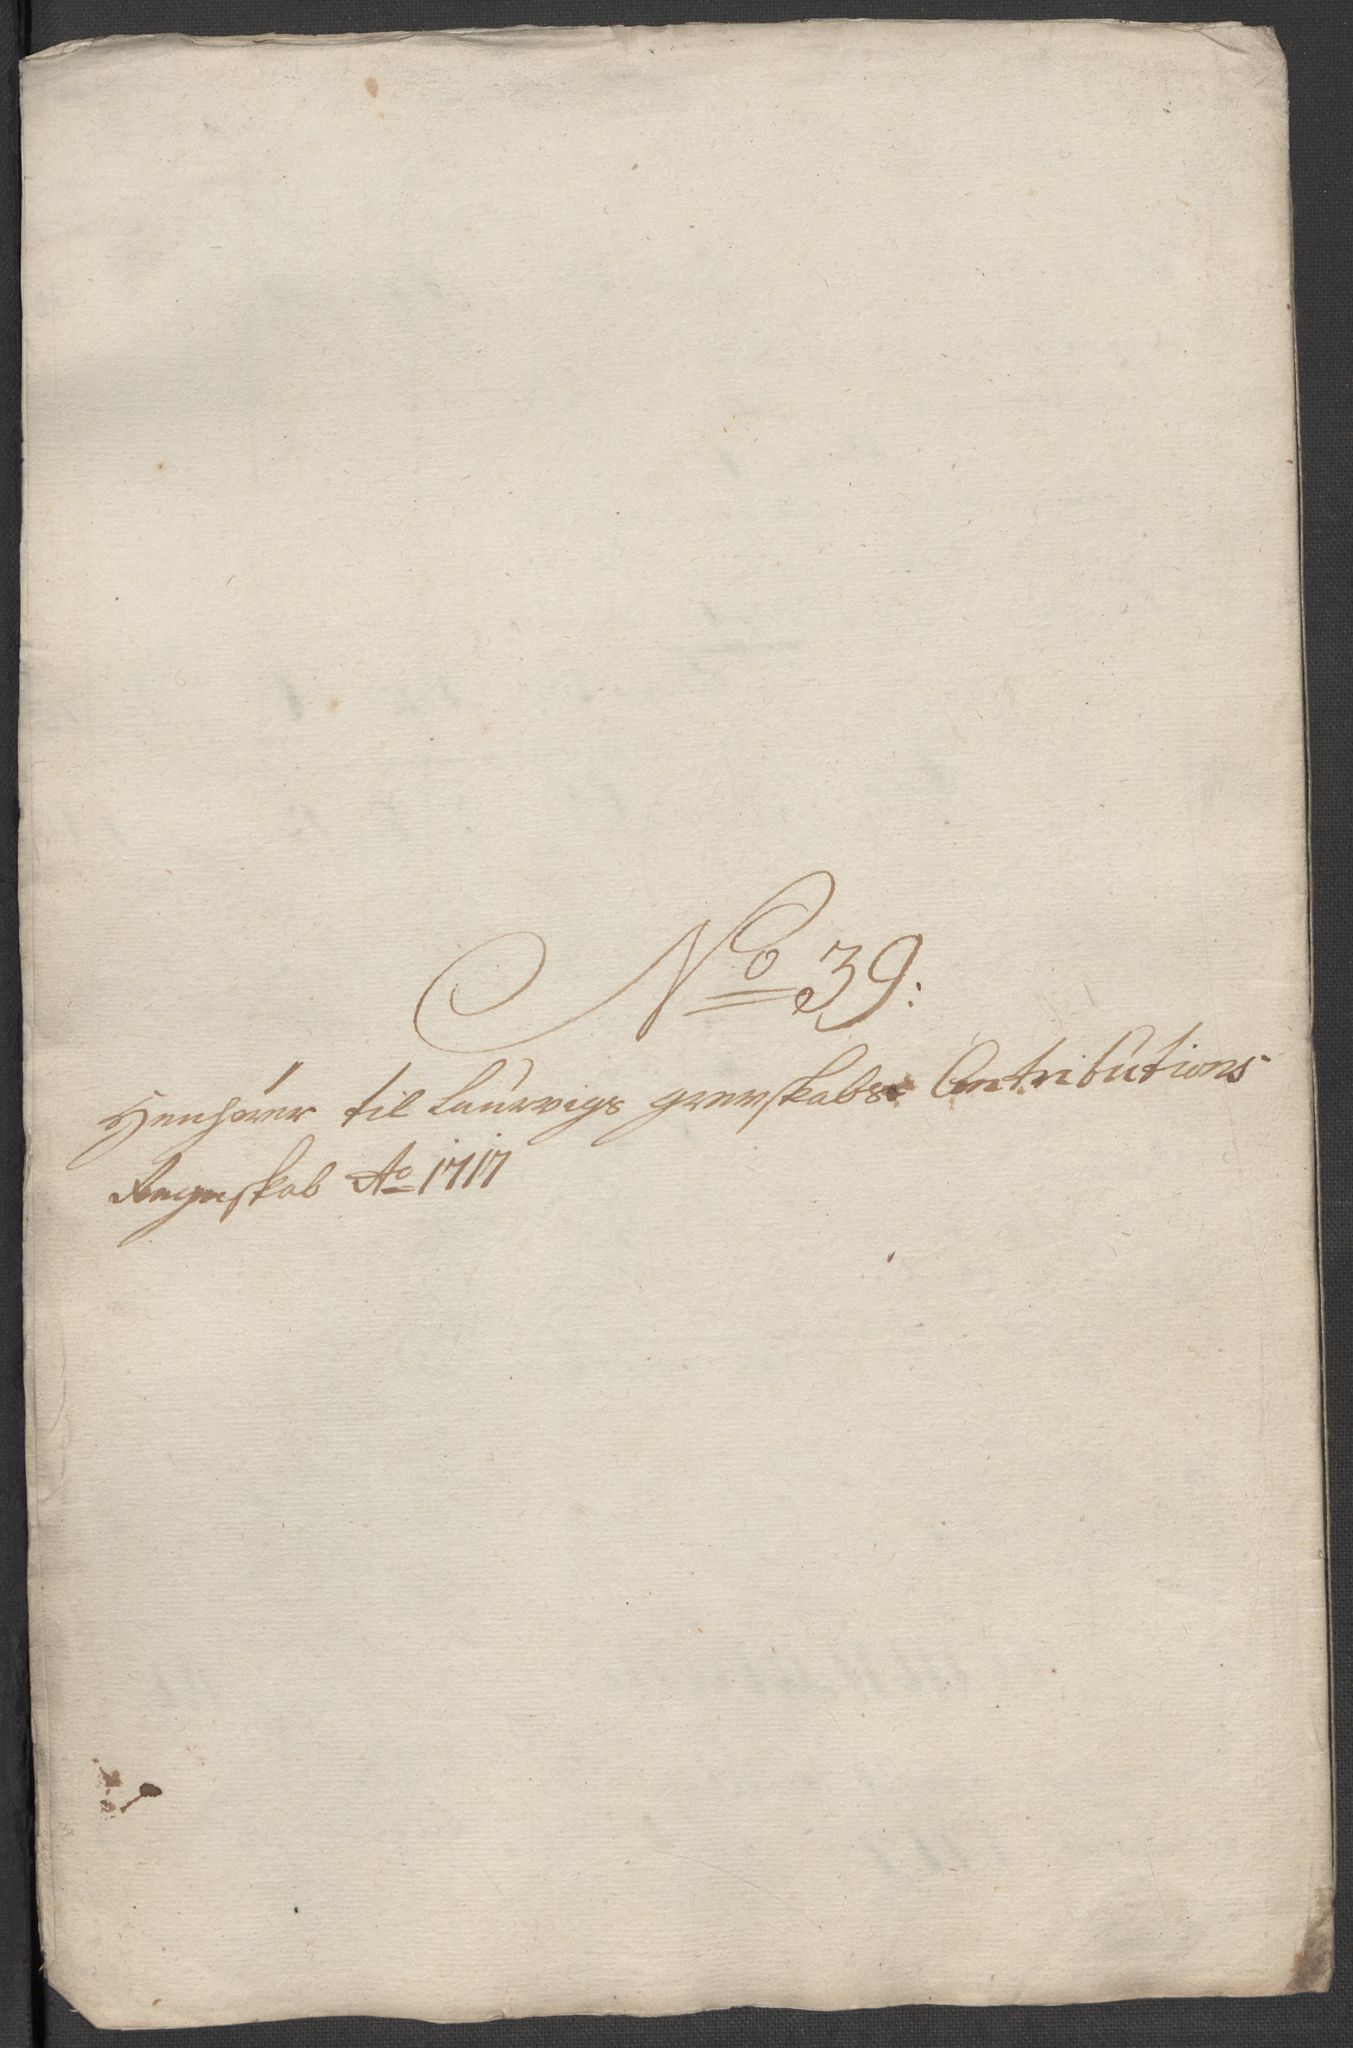 No 39:
Henhører til Laurvigs grevskabs Contributions
Regnskab Ao 1717